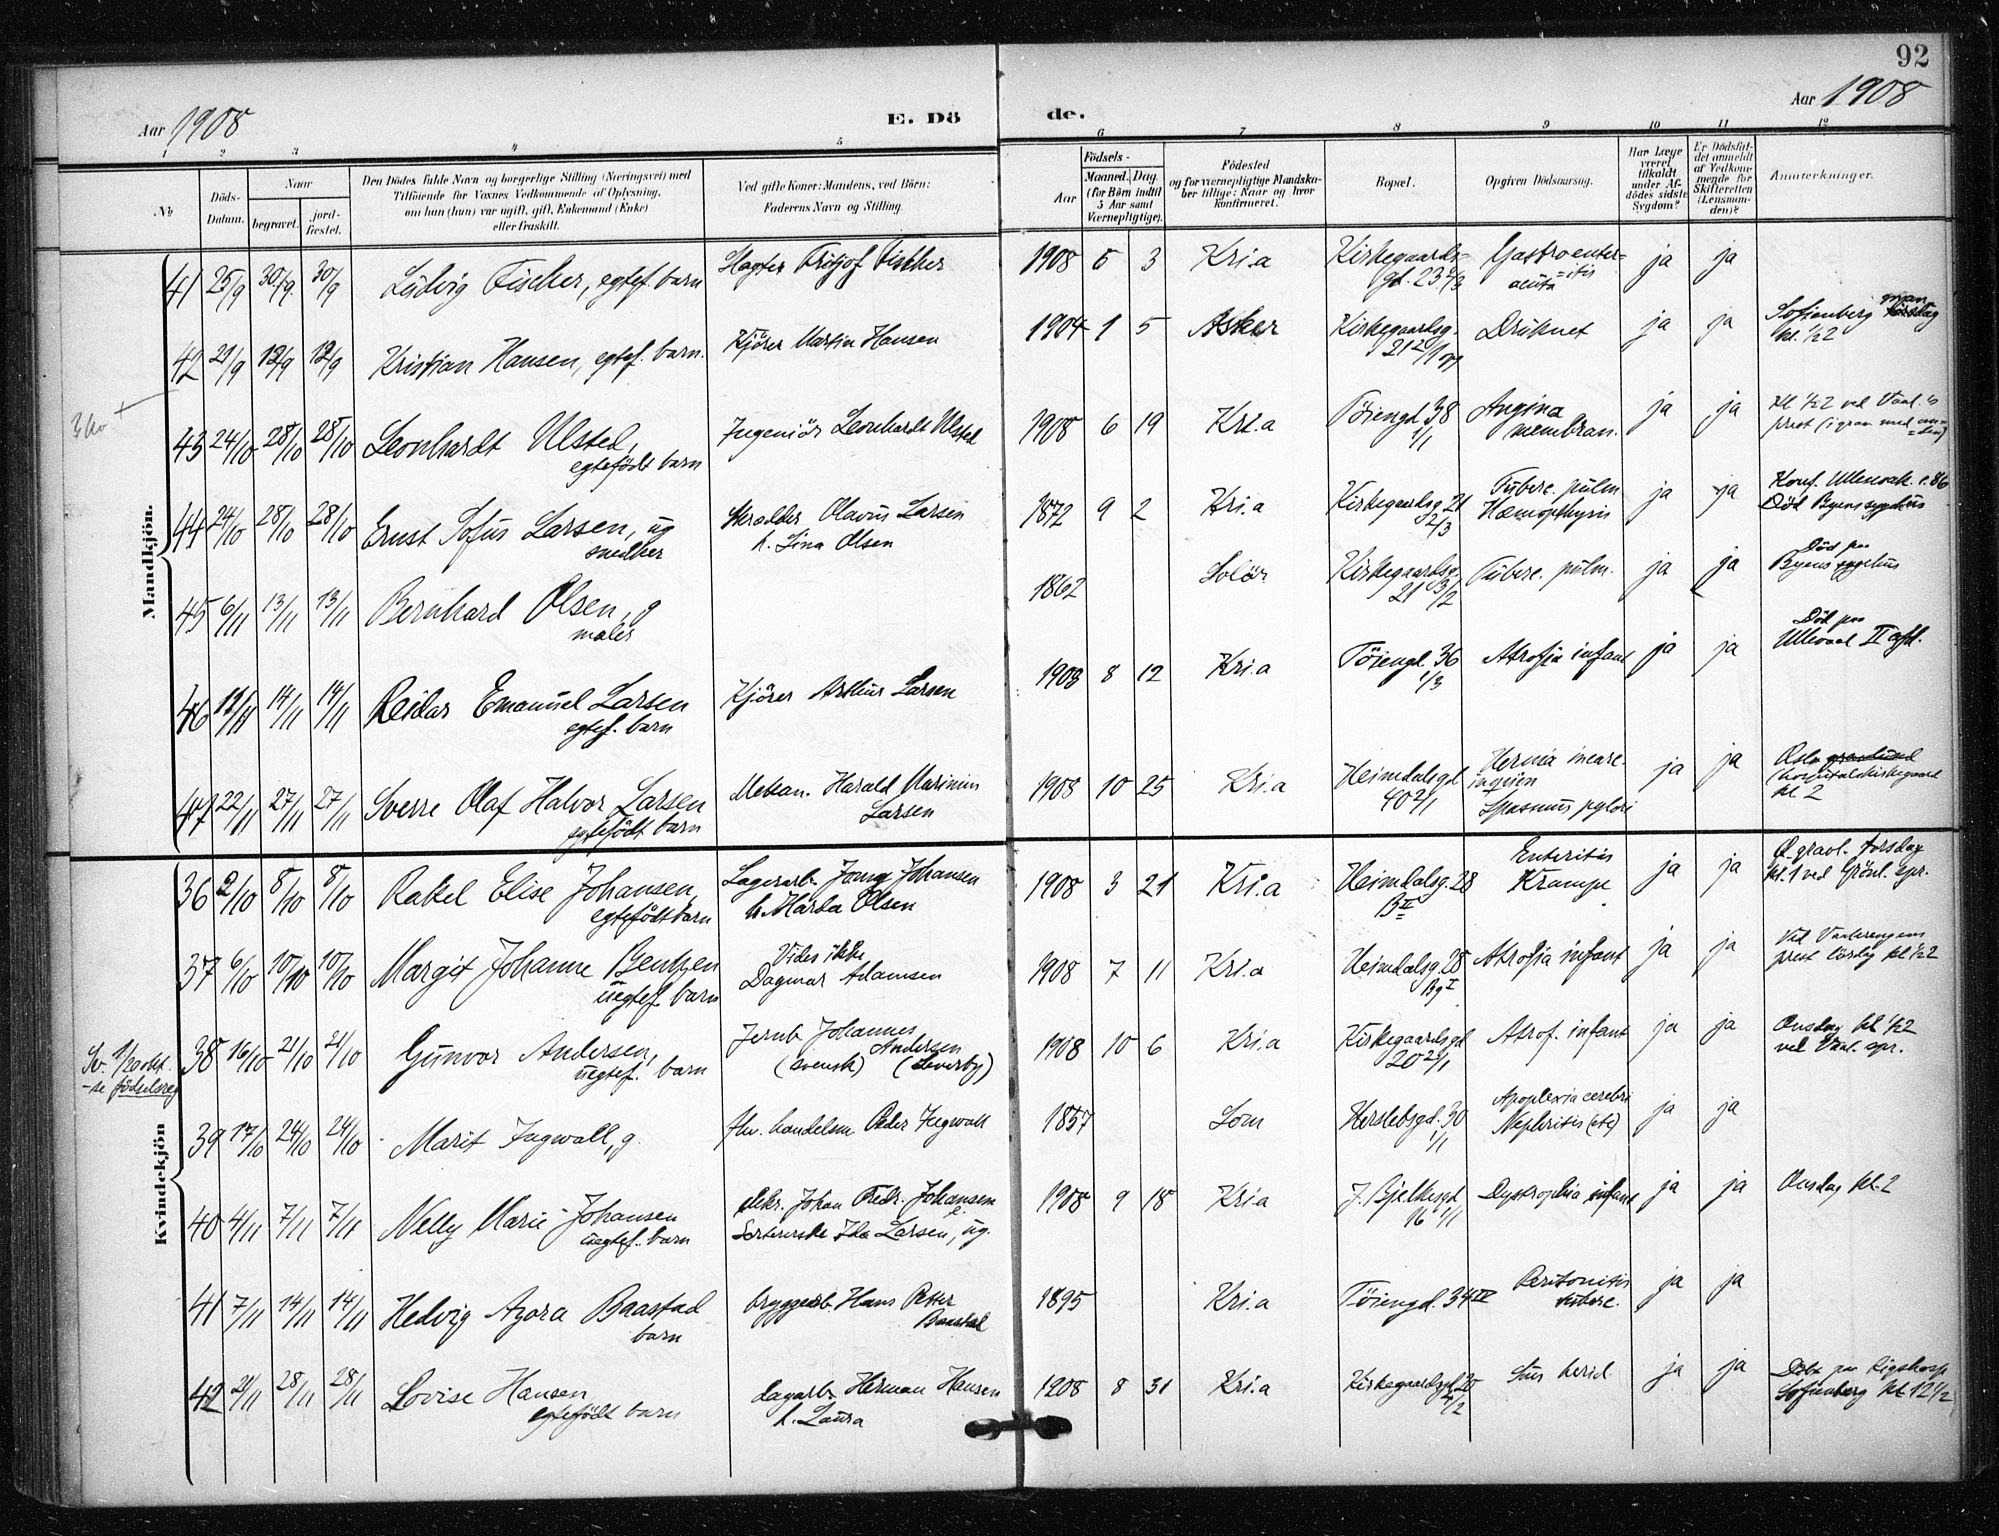 92
Aar 1908
E. Dö
de.
Aar 1908
1 2 3 4 5 6 7 8 9 10 11 12
No
Döds-
Datum.
Naar
begravet.
jord-
fæstet.
Den Dödes fulde Navn og borgerlige Stilling (Næringsvei) med
Tilföiende for Voxnes Vedkommende af Oplysning,
om han (hun) var ugift, gift, Enkemand (Enke)
eller fraskilt.
Ved gifte Koner: Mandens, ved Börn:
Faderens Navn og Stilling.
Aar
Födsels-
Maaned. Dag.
(for Börn indtil
5 Aar samt
Værnepligtige).
Födested
og for værnepligtige Mandska-
ber tillige: Naar og hvor
konfirmeret.
Bopæl.
Opgiven Dödsaarsag.
Har Læge
været
tilkaldt
under Af-
dödes sidste
Sygdom?
Er Dödsfal-
det anmeldt
af Vedkom-
mende for
Skifteretten
(Lensman-
den)?
Anmærkninger.
Mandkjön.
41 25/9 30/9 30/9 Ludvig Fischer, egtef. barn
Fritjof Fischer
1908 5 3 Kri.a Kirkegaards-
gd. 23 2/3
Gastroenter-
=itis
acuta
ja ja
42 21/9 12/9 12/9 Kristian Hansen, egtef. barn.
Kjörer Martin Hansen
1904 1 5 Asker Kirkegaardsg.
Druknet
ja ja
Sofienberg
kl. 1/2
43 24/10 28/10 28/10 Leonhardt Ulsted,
egtefödt barn
Ingeniör Leonhardt Ulsted
1908 6 19 Kri.a Töiengd. 38
1/1
Angina
membran.
ja ja
kl 1/2 ved Vaal.s
prest
44 24/10 28/10 28/10 Ernst Sofus Larsen, ug
snedker
Skrædder Olavus Larsen
h. Lina Olsen
1872 9 2 Kri.a Kirkegaardsg. 21
2/3
Tuberc. pulm
Hæmopthysis
ja ja
Död Byens sygehus
45 6/11 13/11 13/11 Bernhard Olsen, g
maler
1862 Solör Kirkegaardsg.
Tuberc. pulm.
ja ja
Död paa
Byens sygehus
46 11/11 14/11 14/11 Reidar Emanuel Larsen
egtef. barn
Kjörer Arthur Larsen
1908 8 12 Kri.a Töiengd. 36
1/3
Atrofia infant
ja ja
Död paa
Ullevaal II afd.
47 22/11 27/11 27/11 Sverre Olaf Halvor Larsen
egtefödt barn
Mekan. Harald Marinius
Larsen
1908 10 25 Kri.a Heimdalsgd
40 2/1
Hernia incarc.
Spasmus pylori
ja ja
Oslo
kl 2
Kvindekjön
36 2/10 8/10 8/10 Rakel Elise Johansen,
egtefödt barn
Lagerarb. Johansen
h. Marta Olsen
1908 3 21 Kri.a Heimdalsg. 28
B II
Enteritis
Krampe
ja ja
torsdag
kl. 1 ved Grönl. spr.
37 6/10 10/10 10/10 Margit Johanne Bentzen
uegtef. barn
Vides ikke
Dagmar Adamsen
1908 7 11 Kri.a Heimdalsg. 28
Bg I
Atrofia infant
ja ja
Ved Vaalerengens
prest lördag kl 1/2
se födselsreg
38 16/10 21/10 21/10 Gunvor Andersen,
uegtef. barn
Jernb. Johannes
Andersen
(svensk)
1908 10 6 Kri.a Kirkegaardsgd
20 2/1
Atrof. infant
ja ja
Onsdag kl 1/2
ved Vaal. spr.
39 17/10 24/10 24/10 Marit Ingwall, g.
fhv. handelsm Peder Ingwall
1857 Lom Herslebsgd. 30
1/1
Apoplexia cerebri
Nephritis (etc)
ja ja
40 4/11 7/11 7/11 Nelly Marie Johansen
uegtef. barn
Johan Fredr. Johansen
Sorterske Ida Larsen, ug.
1908 9 18 Kri.a J. Bjelkesgd
16 1/1
Dystrophia infant
ja ja
Onsdag kl. 2
41 7/11 14/11 14/11 Hedvig Azora Baastad
barn
bryggearb. Hans Petter
Baastad
1895 Kri.a Töiengd. 34 IV
Peritonitis
tuberc.
ja ja
42 21/11 28/11 28/11 Lovise Hansen
egtefödt barn
dagarb. Herman Hansen
h. Laura
1908 8 31 Kri.a Kirkegaardsgd. 20
4/2
herid.
ja ja
Döbt paa Rigshosp
Sofienberg kl 12 1/2